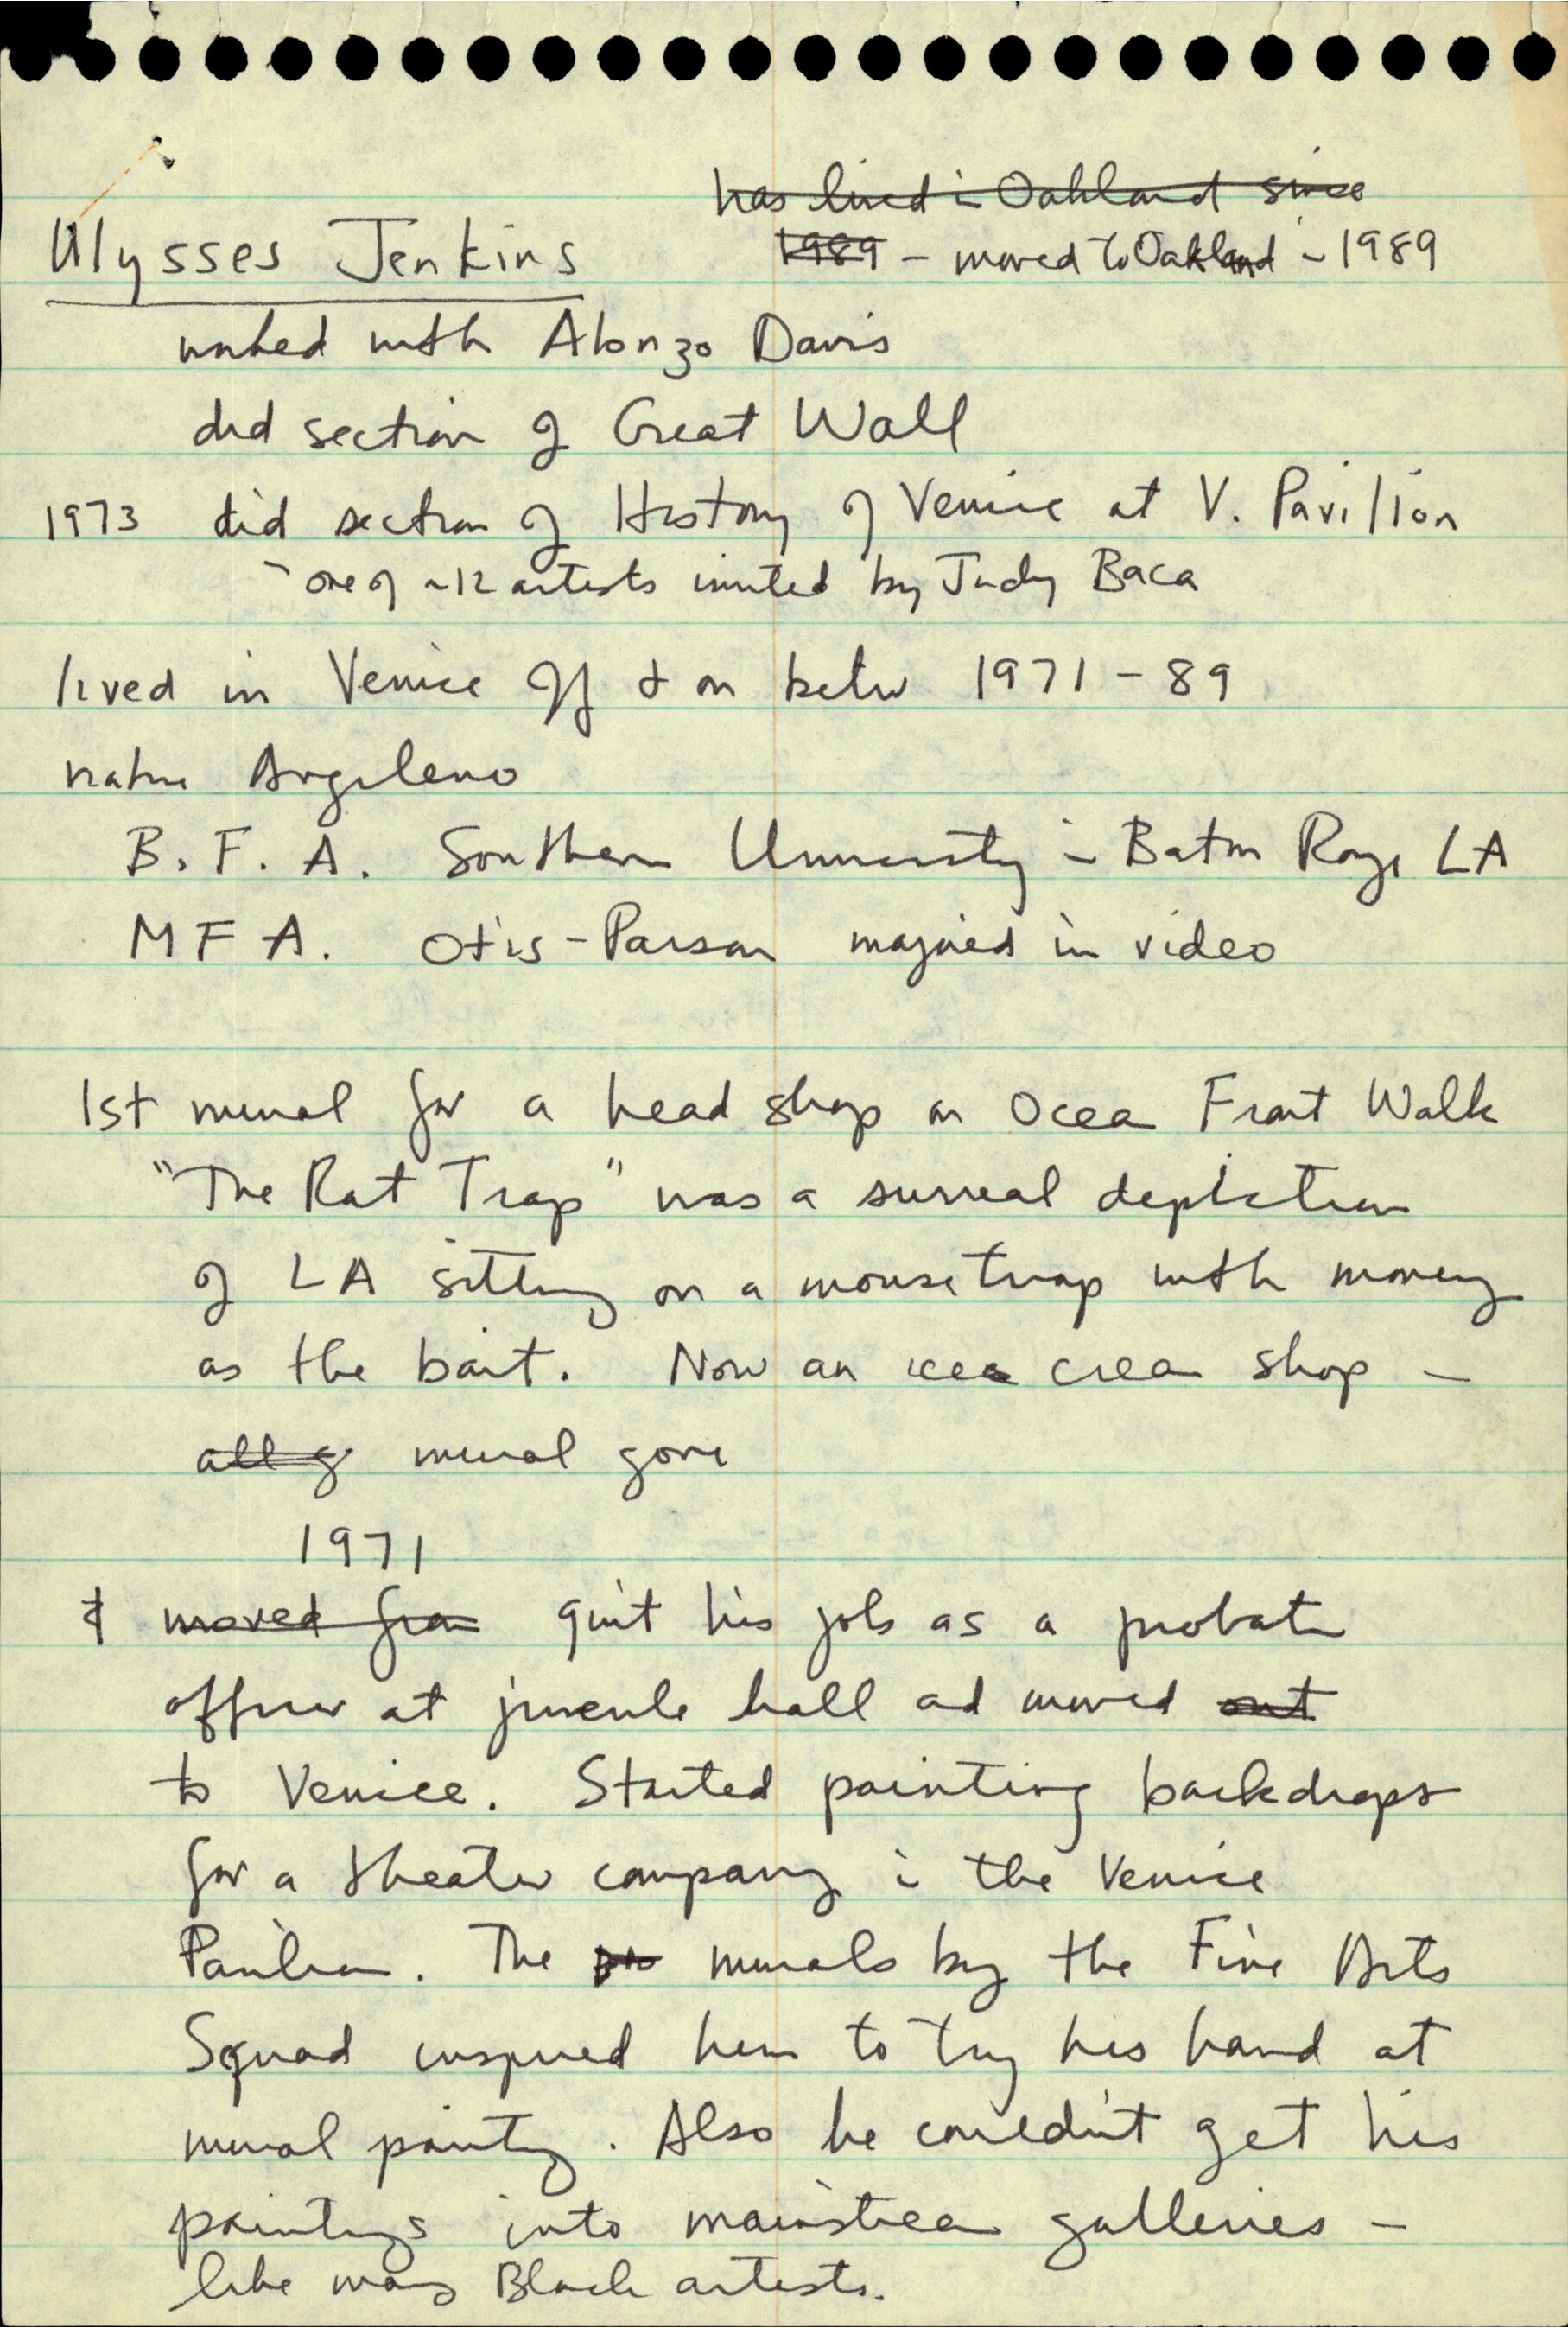 has lived in Oakland since
Ulysses Jenkins
1989 - moved to Oakland in 1989
worked with Alonzo Davis
did section of Great Wall
1973 did section of History of Venice at V. Pavillion
- one of ~12 artists invited by Judy Baca
lived in Venice off & on betw 1971-89
native Angeleno
B.F.A. Southern University in Baton Rouge LA
MFA. Otis-Parson majored in video
1st mural for a head shop on Ocean Front Walk
"The Rat Trap" was a surreal depiction
of LA sitting on a mousetrap with money
as the bait. Now an ice cream shop -
all g mural gone
1971
& moved from quit his job as a probation
officer at juvenile hall and moved out
to Venice. Started painting backdrops
for a theater company in the Venice
Pavilion. The murals by the Fine Arts
Squad inspired him to try his hand at
mural painting. Also he couldn't get his
paintings into mainstream galleries -
like many Black artists.